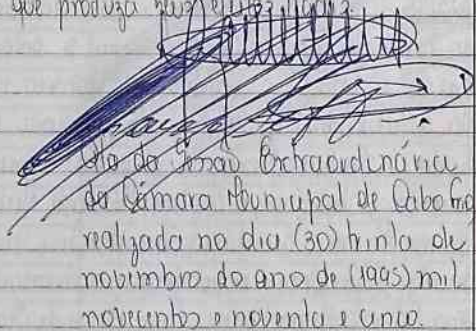 que produza seus efeitos legais.
Ata da Sessão Extraordinária
da Câmara Municipal de Cabo Frio
realizada no dia (30) trinta de
novembro do ano de (1995) mil
novecentos e noventa e cinco.